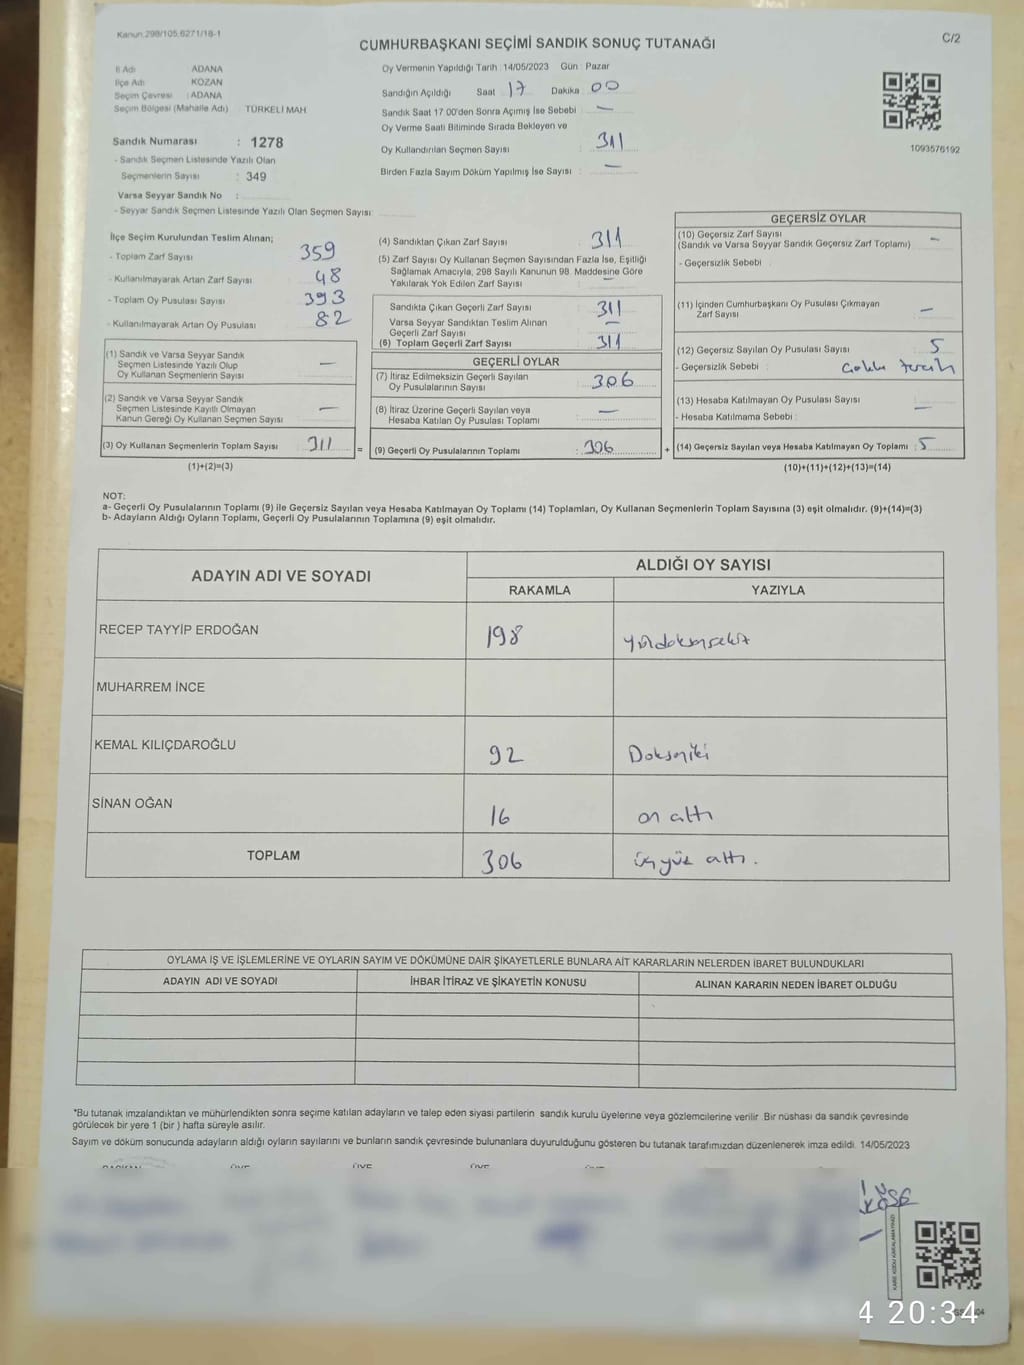 Kanun.298/105,6271/18-1
CUMHURBAŞKANI SEÇİMİ SANDIK SONUÇ TUTANAĞI
C/2
İl Adı ADANA
İlçe Adı KOZAN
Seçim Çevresi : ADANA
Seçim Bölgesi (Mahalle Adı) TÜRKELİ MAH
Oy Vermenin Yapıldığı Tarih :14/05/2023 Gün : Pazar
Sandığın Açıldığı Saat 17 Dakika 00
Sandık Saat 17.00'den Sonra Açımış İse Sebebi : —
Oy Verme Saati Bitiminde Sırada Bekleyen ve
Oy Kullandırılan Seçmen Sayısı : 311
Birden Fazla Sayım Döküm Yapılmış İse Sayısı : —
1093576192
Sandık Numarası : 1278
- Sandık Seçmen Listesinde Yazılı Olan
Seçmenlerin Sayısı : 349
Varsa Seyyar Sandık No :
- Seyyar Sandık Seçmen Listesinde Yazılı Olan Seçmen Sayısı:
İlçe Seçim Kurulundan Teslim Alınan;
- Toplam Zarf Sayısı 359
- Kullanılmayarak Artan Zarf Sayısı 48
- Toplam Oy Pusulası Sayısı 393
- Kullanılmayarak Artan Oy Pusulası 82
(1) Sandık ve Varsa Seyyar Sandık
Seçmen Listesinde Yazılı Olup
Oy Kullanan Seçmenlerin Sayısı —
(2) Sandık ve Varsa Seyyar Sandık
Seçmen Listesinde Kayıtlı Olmayan
Kanun Gereği Oy Kullanan Seçmen Sayısı —
(3) Oy Kullanan Seçmenlerin Toplam Sayısı 311
(1)+(2)=(3)
=
(4) Sandıktan Çıkan Zarf Sayısı : 311
(5) Zarf Sayısı Oy Kullanan Seçmen Sayısından Fazla İse, Eşitliği
Sağlamak Amacıyla, 298 Sayılı Kanunun 98. Maddesine Göre
Yakılarak Yok Edilen Zarf Sayısı : —
Sandıkta Çıkan Geçerli Zarf Sayısı : 311
Varsa Seyyar Sandıktan Teslim Alınan
Geçerli Zarf Sayısı : —
(6) Toplam Geçerli Zarf Sayısı : 311
GEÇERLİ OYLAR
(7) İtiraz Edilmeksizin Geçerli Sayılan
Oy Pusulalarının Sayısı : 306
(8) İtiraz Üzerine Geçerli Sayılan veya
Hesaba Katılan Oy Pusulası Toplamı : —
(9) Geçerli Oy Pusulalarının Toplamı : 306
+
GEÇERSİZ OYLAR
(10) Geçersiz Zarf Sayısı
(Sandık ve Varsa Seyyar Sandık Geçersiz Zarf Toplamı) —
- Geçersizlik Sebebi :
(11) İçinden Cumhurbaşkanı Oy Pusulası Çıkmayan
Zarf Sayısı : —
(12) Geçersiz Sayılan Oy Pusulası Sayısı : 5
- Geçersizlik Sebebi : tercih
(13) Hesaba Katılmayan Oy Pusulası Sayısı : —
- Hesaba Katılmama Sebebi :
(14) Geçersiz Sayılan veya Hesaba Katılmayan Oy Toplamı : 5
(10)+(11)+(12)+(13)=(14)
NOT:
a- Geçerli Oy Pusulalarının Toplamı (9) ile Geçersiz Sayılan veya Hesaba Katılmayan Oy Toplamı (14) Toplamları, Oy Kullanan Seçmenlerin Toplam Sayısına (3) eşit olmalıdır. (9)+(14)=(3)
b- Adayların Aldığı Oyların Toplamı, Geçerli Oy Pusulalarının Toplamına (9) eşit olmalıdır.
ADAYIN ADI VE SOYADI
ALDIĞI OY SAYISI
RAKAMLA YAZIYLA
RECEP TAYYİP ERDOĞAN 198 yüzdoksansekiz
MUHARREM İNCE
KEMAL KILIÇDAROĞLU 92 Doksaniki
SİNAN OĞAN 16 on altı
TOPLAM 306 üçyüz altı.
OYLAMA İŞ VE İŞLEMLERİNE VE OYLARIN SAYIM VE DÖKÜMÜNE DAİR ŞİKAYETLERLE BUNLARA AİT KARARLARIN NELERDEN İBARET BULUNDUKLARI
ADAYIN ADI VE SOYADI İHBAR İTİRAZ VE ŞİKAYETİN KONUSU ALINAN KARARIN NEDEN İBARET OLDUĞU
*Bu tutanak imzalandıktan ve mühürlendikten sonra seçime katılan adayların ve talep eden siyasi partilerin sandık kurulu üyelerine veya gözlemcilerine verilir .Bir nüshası da sandık çevresinde
görülecek bir yere 1 (bir ) hafta süreyle asılır.
Sayım ve döküm sonucunda adayların aldığı oyların sayılarını ve bunların sandık çevresinde bulunanlara duyurulduğunu gösteren bu tutanak tarafımızdan düzenlenerek imza edildi. 14/05/2023
BAŞKAN ÜYE ÜYE ÜYE ÜYE
KÖSE
KARE KODU KARALAMAYINIZ!
4 20:34